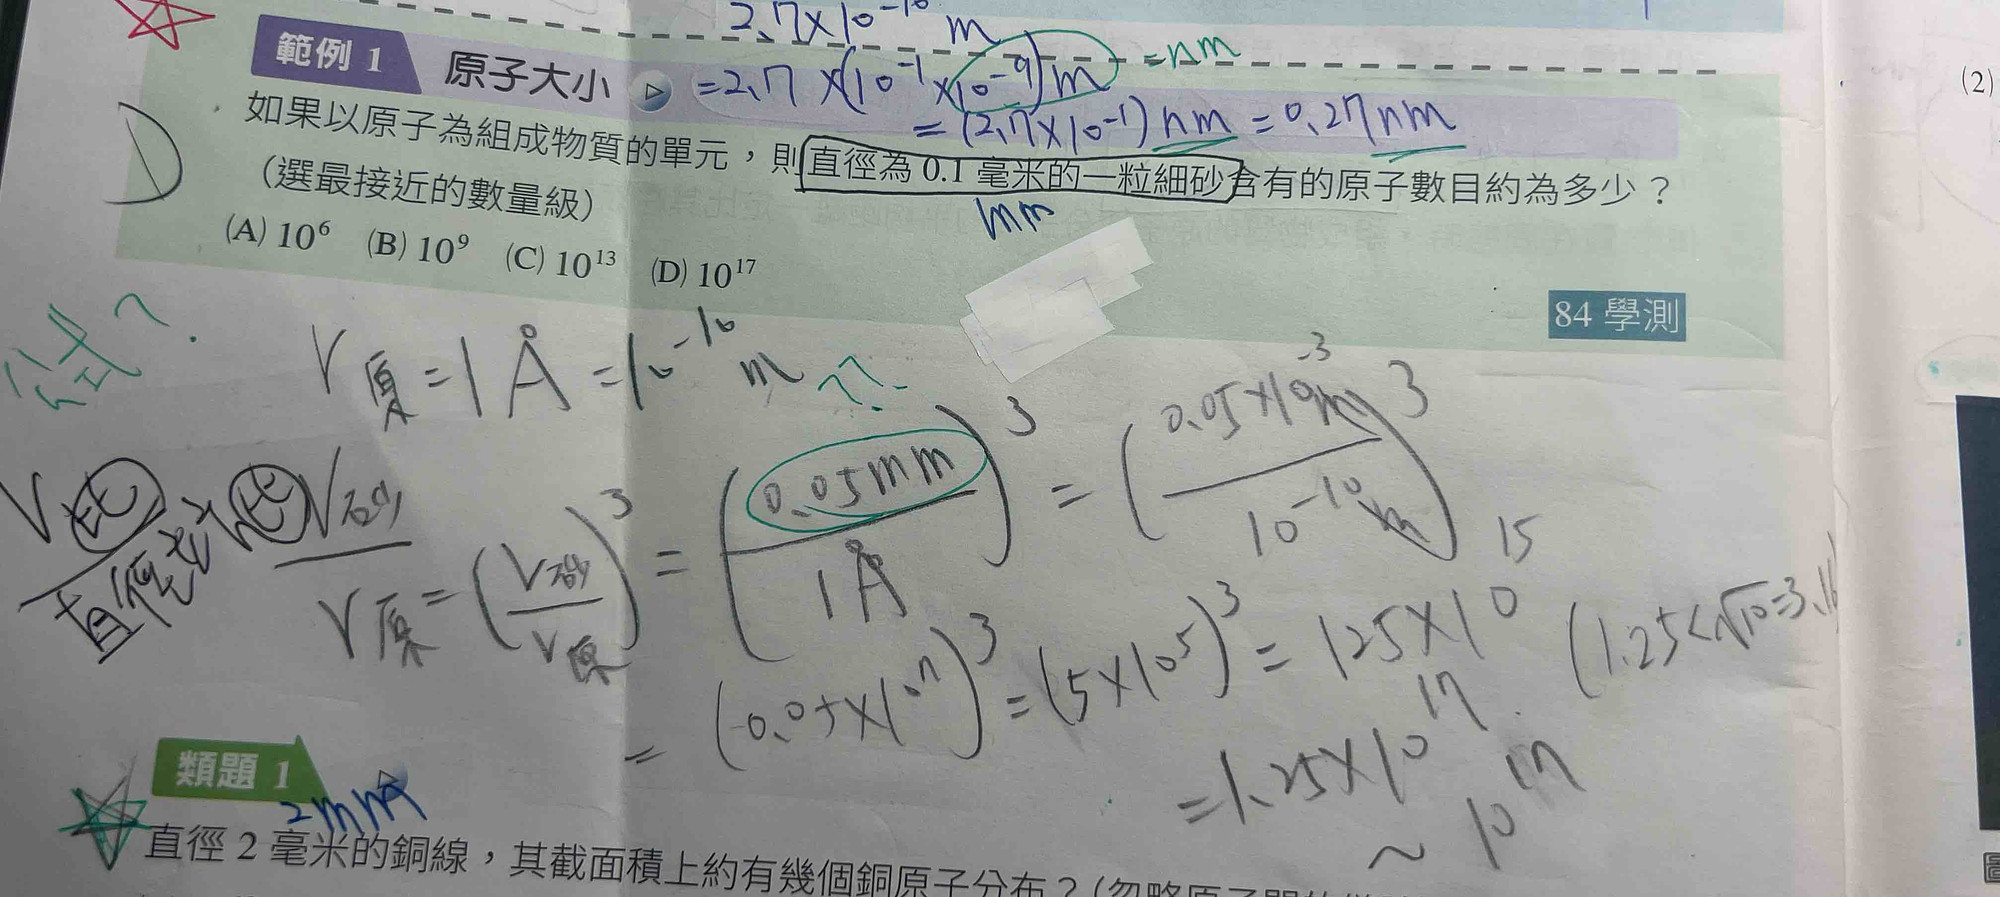 2.7×10⁻¹⁰ m
範例 1 原子大小
=2.7×(10⁻¹×10⁻⁹)m =nm
=(2.7×10⁻¹) nm = 0.27nm
如果以原子為組成物質的單元，則直徑為 0.1 毫米的一粒細砂含有的原子數目約為多少？
mm
（選最接近的數量級）
D
(A) 10⁶ (B) 10⁹ (C) 10¹³ (D) 10¹⁷
84 學測
公式？
r原=1Å=10⁻¹⁰ m ??
V砂/V原=(r砂/r原)³=(0.05mm/1Å)³=(0.05×10⁻³m/10⁻¹⁰m)³
V比
直徑
比
=(0.05×10⁷)³=(5×10⁵)³=125×10¹⁵
=1.25×10¹⁷ (1.25<√10=3.16
~10¹⁷
類題 1
2mm
直徑 2 毫米的銅線，其截面積上約有幾個銅原子分布？(忽略原子間的
(2)
圖